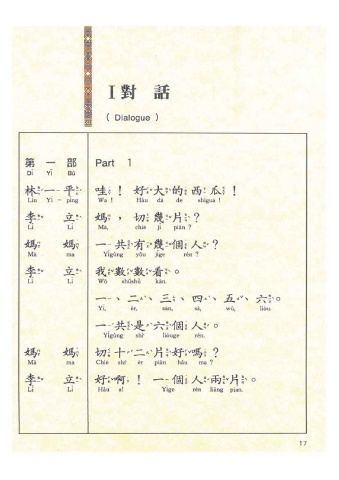 I 對 話
( Dialogue )
第 一 部 Part 1
Dì Yī Bù
林一平 哇！好大的西瓜！
Lín Yì-píng Wa! Hǎu dà de shīguā!
李 立 媽，切幾片？
Lǐ Lì Mā, chiē jǐ piàn?
媽 媽 一共有幾個人？
Mā ma Yígùng yǒu jǐge rén?
李 立 我數數看。
Lǐ Lì Wǒ shǔshǔ kàn.
一、二、三、四、五、六。
Yī, èr, sān, sì, wǔ, liòu.
一共是六個人。
Yígùng shì liòuge rén.
媽 媽 切十二片好嗎？
Mā ma Chiē shí èr piàn hǎu ma?
李 立 好啊！一個人兩片。
Lǐ Lì Hǎu a! Yíge rén liǎng piàn.
17